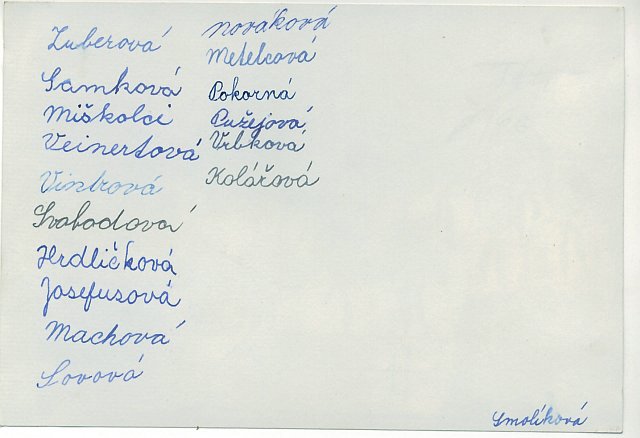 Zuberová
Samková
Miškolci
Veinertová
Vintrová
Svobodová
Hrdličková
Josefusová
Machová
Lovová
Nováková
Metelcová
Pokorná
Pužejová
Vrbková
Kolářová
Smolíková